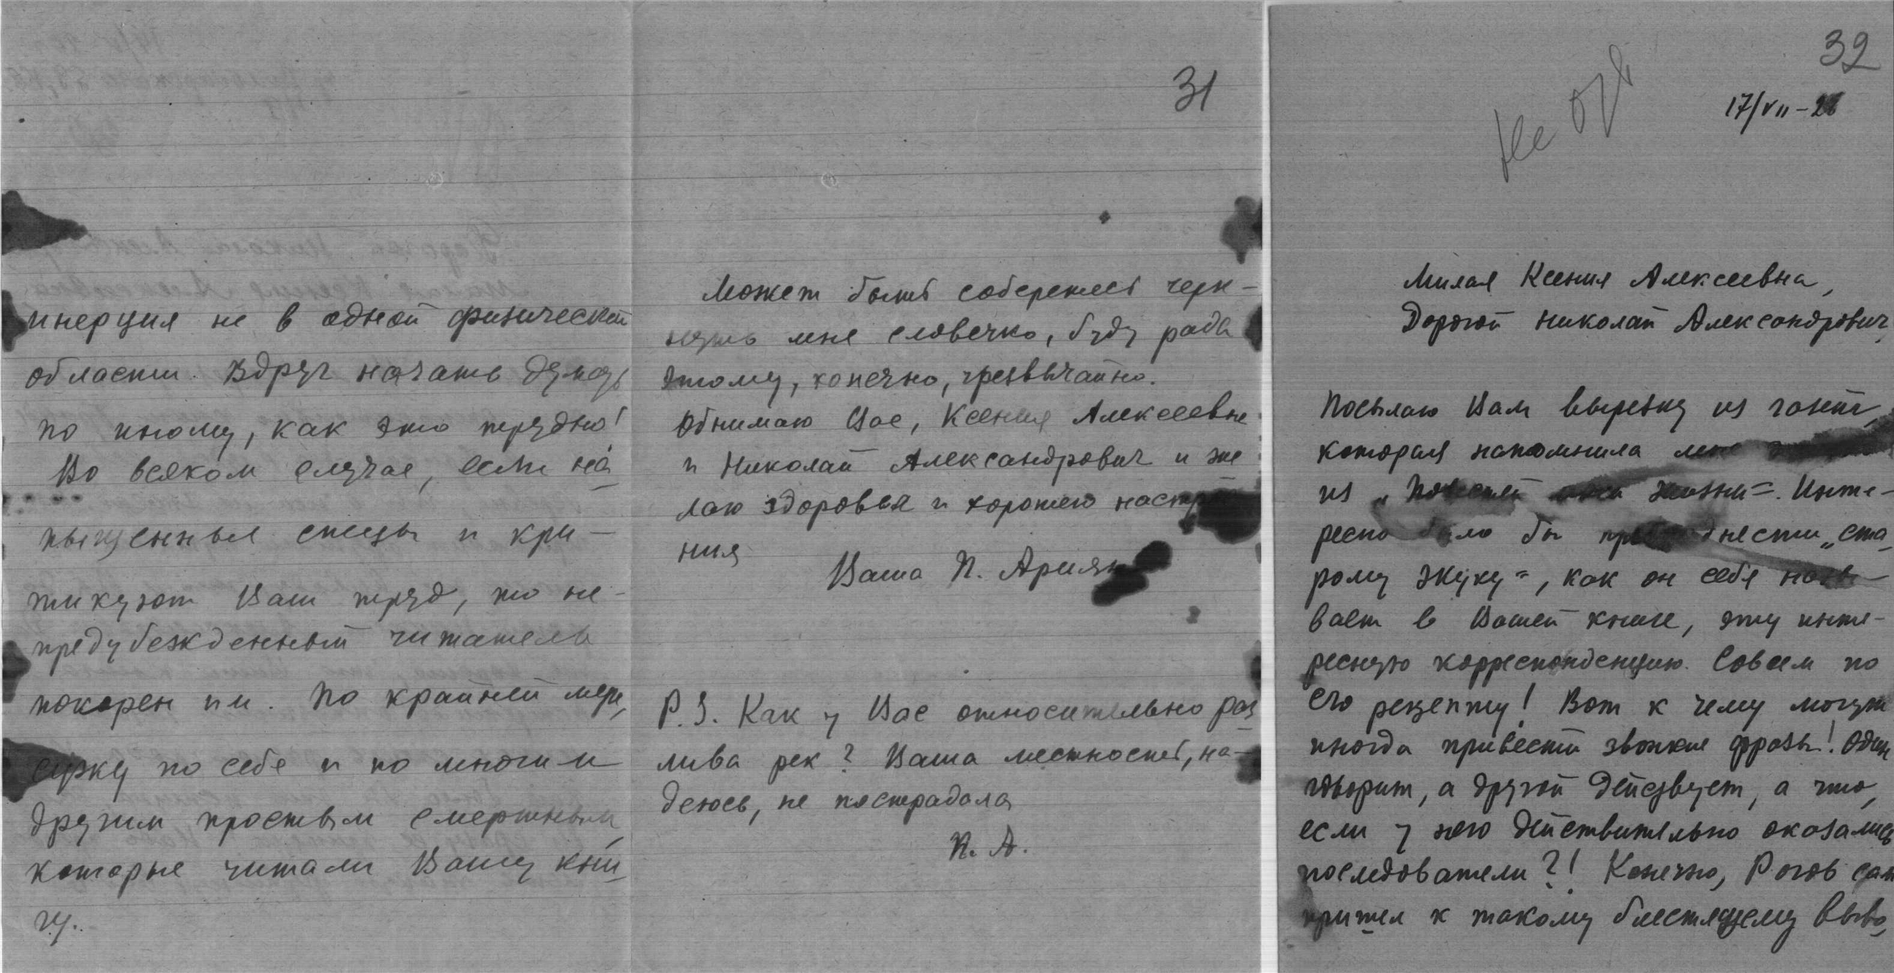 инерция не в одной физической
области. Вдруг начать думать
по иному, как это трудно!
Во всяком случае, если на
пыщенные спецы и кри-
тикуют Ваш труд, то не-
предубежденный читатель
покорен им. По крайней мере,
сужу по себе и по многим
другим простым смертным,
которые читали Вашу кни
гу.
31
Может быть соберетесь черк-
нуть мне словечко, буду рада
этому, конечно, чрезвычайно.
Обнимаю Вас, Ксения Алексеевна
и Николай Александрович и же
лаю здоровья и хорошего настрое
ния
Ваша П. Ариян
P.S. Как у Вас относительно раз
лива рек? Ваша местность, на-
деюсь, не пострадала
П. А.
32
Не
17/VII-26
Милая Ксения Алексеевна,
Дорогой Николай Александрович,
Посылаю Вам вырезку из газеты,
которая напомнила мне
из „Повестей жизни“. Инте-
ресно было бы преподнести „ста
рому жуку“, как он себя назы-
вает в Вашей книге, эту инте-
ресную корреспонденцию. Совсем по
его рецепту! Вот к чему могут
иногда привести звонкие фразы! Один
говорит, а другой действует, а что,
если у него действительно оказались
последователи?! Конечно, Рогов сам
пришел к такому блестящему выво